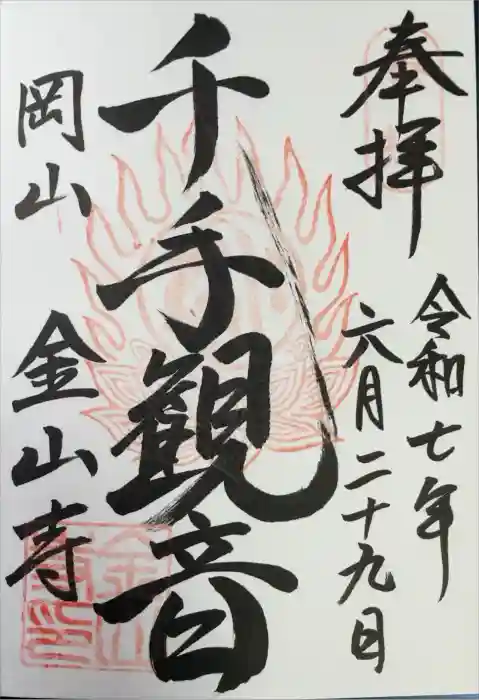 奉拝
令和七年
六月二十九日
千手観音
岡山
金山寺
金山
寺印